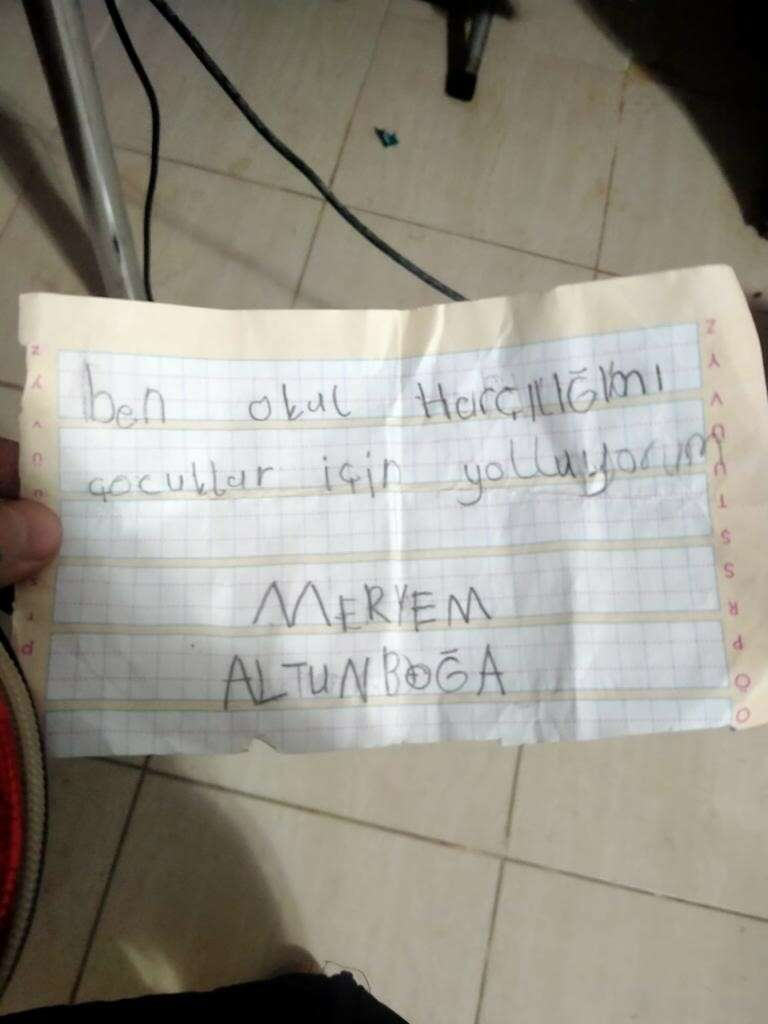 ben okul HarçılıĞımı
çocuklar için yolluyorum
MERYEM
ALTUNBOĞA
Z
Y
V
Ü
U
T
Ş
S
R
P
Ö
O